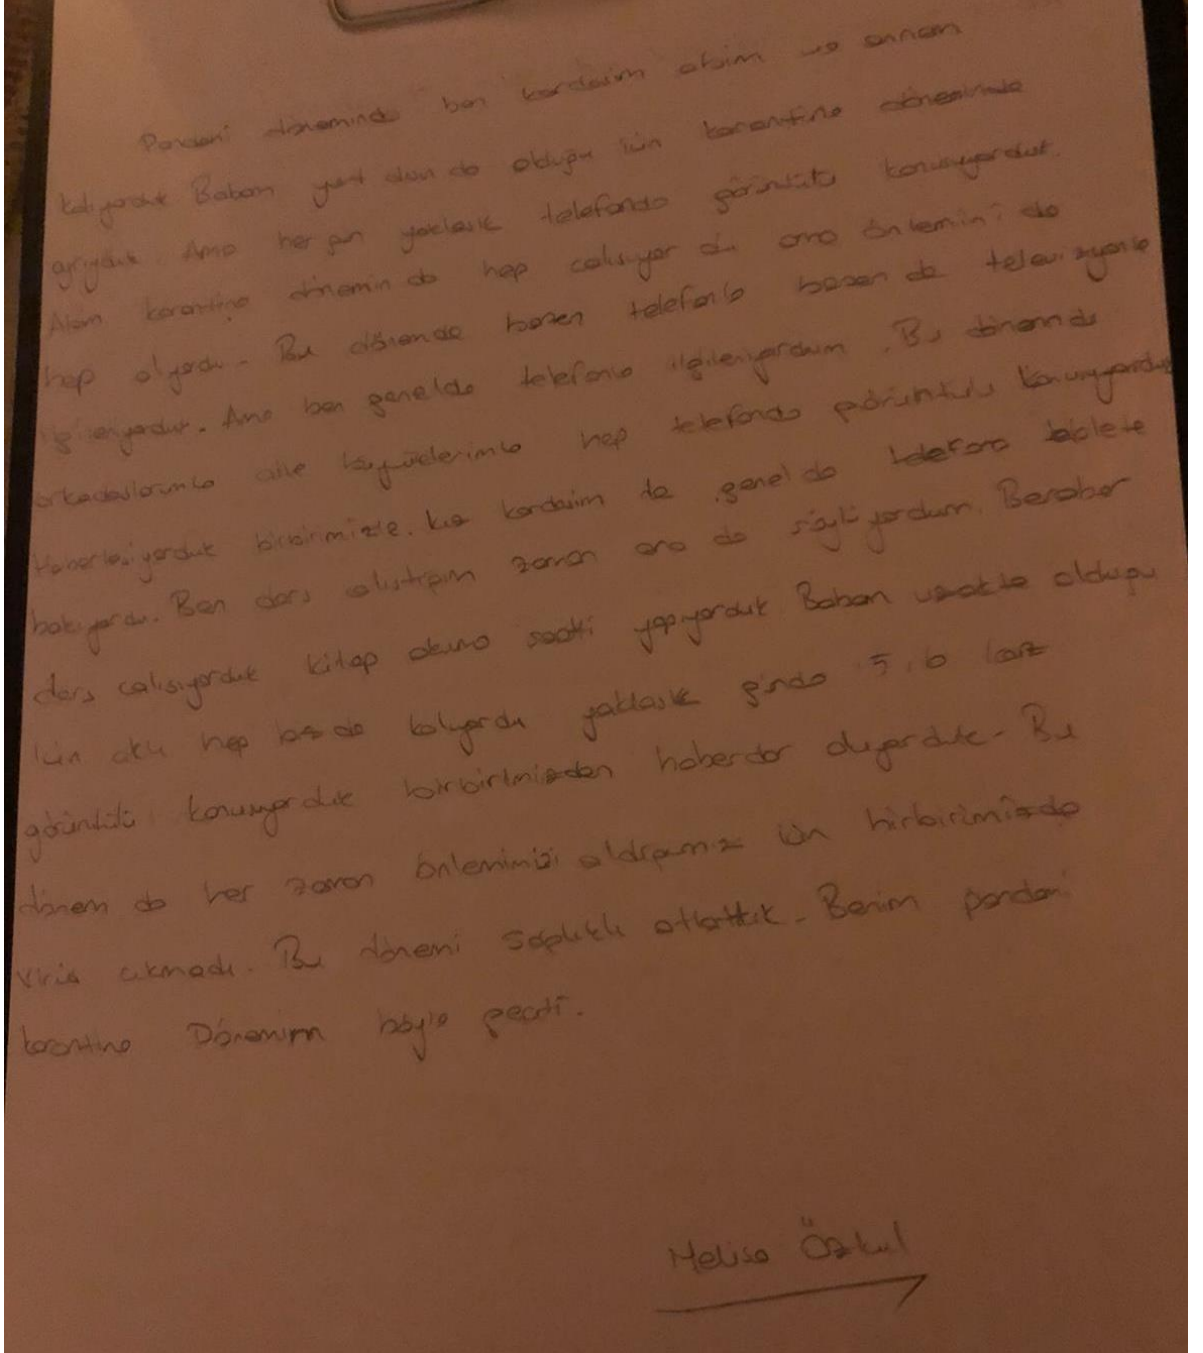 Pandemi döneminde ben kardeşim abim ve annem
kalıyorduk Babam yurt dışın da olduğu için karantina döneminde
ayrıydık. Ama her gün yaklaşık telefonda görüntülü konuşuyorduk.
karantina dönemin da hep çalışıyor du ama önlemini de
hep alıyordu. Bu dönemde bazen telefonla bazen de televizyonla
ilgileniyorduk. Ama ben genelde telefonla ilgileniyordum. Bu dönemde
arkadaşlarımla aile büyüklerimle hep telefonda görüntülü konuşuyorduk
Haberleşiyorduk birbirmizle. kız kardaşim de genel de telefona tablete
bakıyordu. Ben ders zaman ona da söylüyordum. Beraber
ders calısıyorduk kitap okuma saati yapıyorduk Babam uzakta olduğu
için aklı hep biz de kalıyordu yaklaşık günde 5, 6 kez
görüntülü konuşuyorduk birbirimizden haberdar oluyorduk. Bu
dönem de her zaman önlemimizi aldığımız için hirbirimizde
virüs cıkmadı. Bu dönemi sağlıklı atlattık. Benim pandemi
karantina Dönemim böyle geçti.
Melisa Özkul